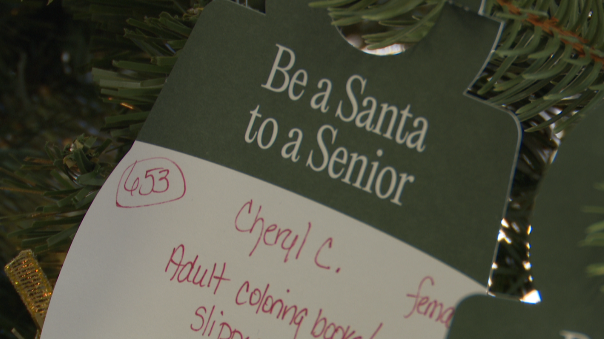 Be a Santa
to a Senior
653
Cheryl C.
Adult coloring books